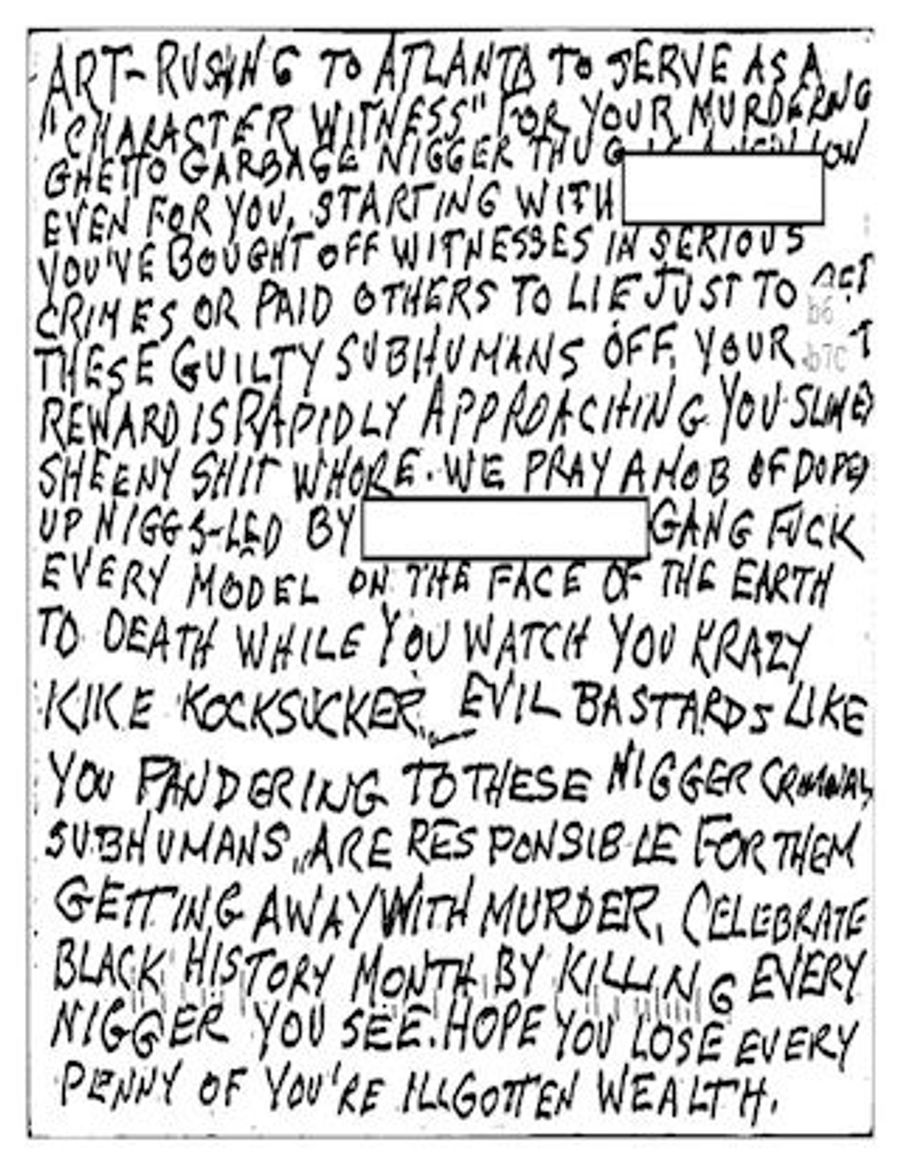 ART-RUSHING TO ATLANTA TO SERVE AS A
"CHARACTER WITNESS" FOR YOUR MURDERNG
GHETTO GARBAGE NIGGER THUG IS A NEW LOW
EVEN FOR YOU. STARTING WITH
YOU'VE BOUGHT OFF WITNESSES IN SERIOUS
CRIMES OR PAID OTHERS TO LIE JUST TO GET
b6
THESE GUILTY SUBHUMANS OFF. YOUR
b7C
REWARD IS RAPIDLY APPROACHING YOU SLIMEY
SHEENY SHIT WHORE. WE PRAY A MOB OF DOPED
UP NIGGS-LED BY GANG FUCK
EVERY MODEL ON THE FACE OF THE EARTH
TO DEATH WHILE YOU WATCH YOU KRAZY
KIKE KOCKSUCKER. EVIL BASTARDS LIKE
YOU PANDERING TO THESE NIGGER CRIMINAL
SUBHUMANS, ARE RESPONSIBLE FOR THEM
GETTING AWAY WITH MURDER. CELEBRATE
BLACK HISTORY MONTH BY KILLING EVERY
NIGGER YOU SEE. HOPE YOU LOSE EVERY
PENNY OF YOU'RE ILLGOTTEN WEALTH.